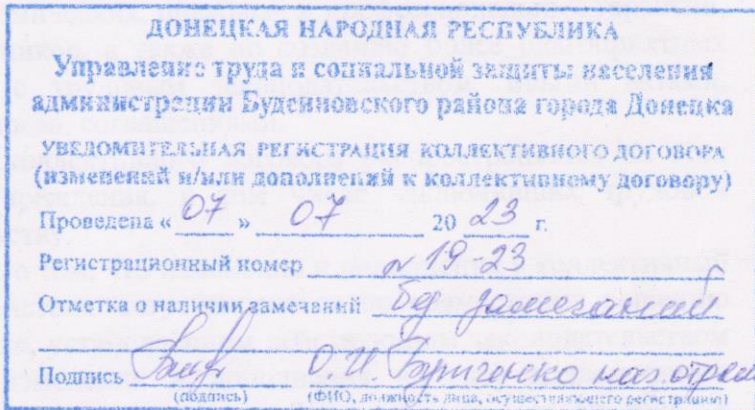 ДОНЕЦКАЯ НАРОДНАЯ РЕСПУБЛИКА
Управление труда и социальной защиты населения
администрации Буденновского района города Донецка
УВЕДОМИТЕЛЬНАЯ РЕГИСТРАЦИЯ КОЛЛЕКТИВНОГО ДОГОВОРА
(изменений и/или дополнений к коллективному договору)
Проведена « 07 » 07 20 23 г.
Регистрационный номер № 19-23
Отметка о наличии замечаний без замечаний
Подпись О.И. нач. отдела
(подпись) (ФИО, должность лица, осуществляющего регистрацию)